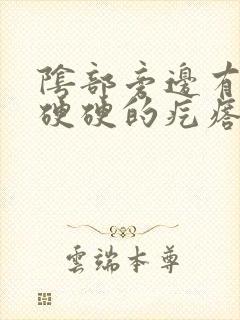 陰部旁邊有
硬硬的疙瘩
雲端本尊